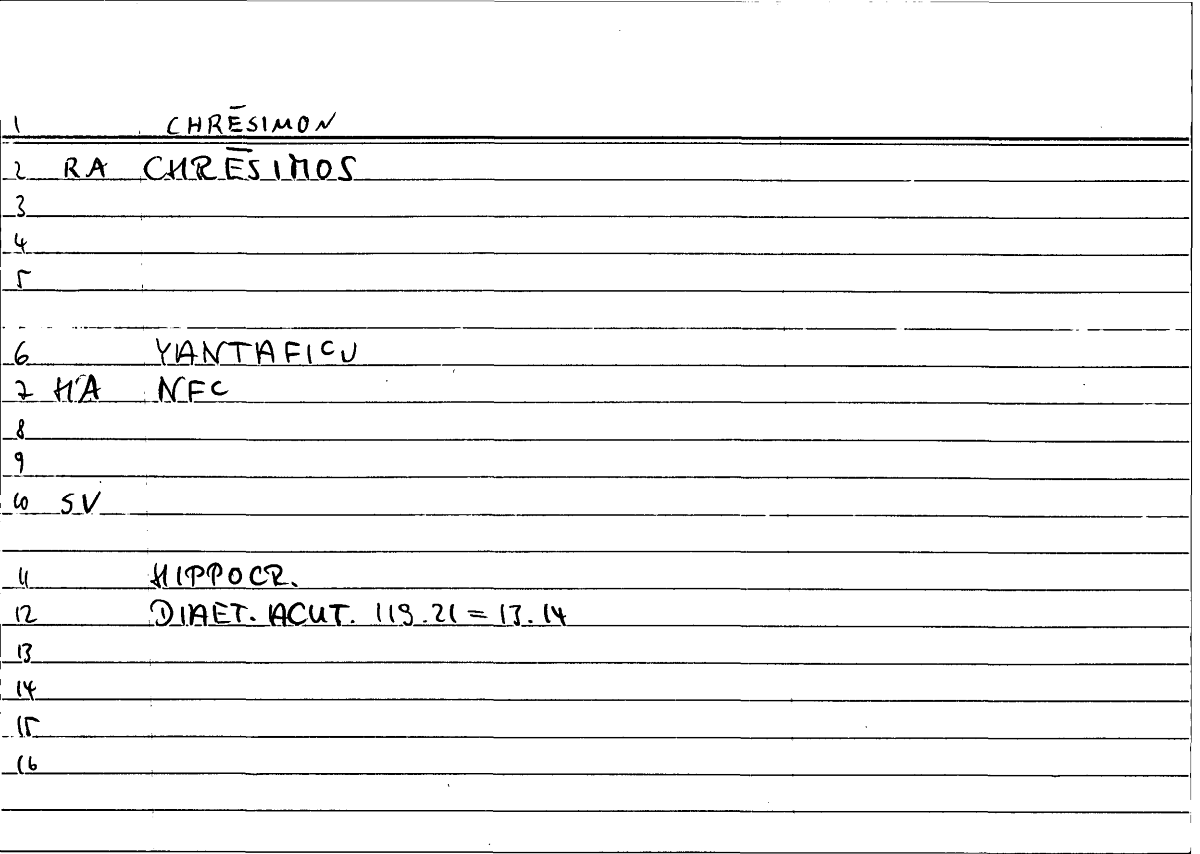 1 CHRĒSIMON
2 RA CHRĒSIMOS
3
4
5
6 YANTAFICU
7 H'A NFC
8
9
10 SV
11 HIPPOCR.
12 DIAET. ACUT. 119.21 = 13.14
13
14
15
16